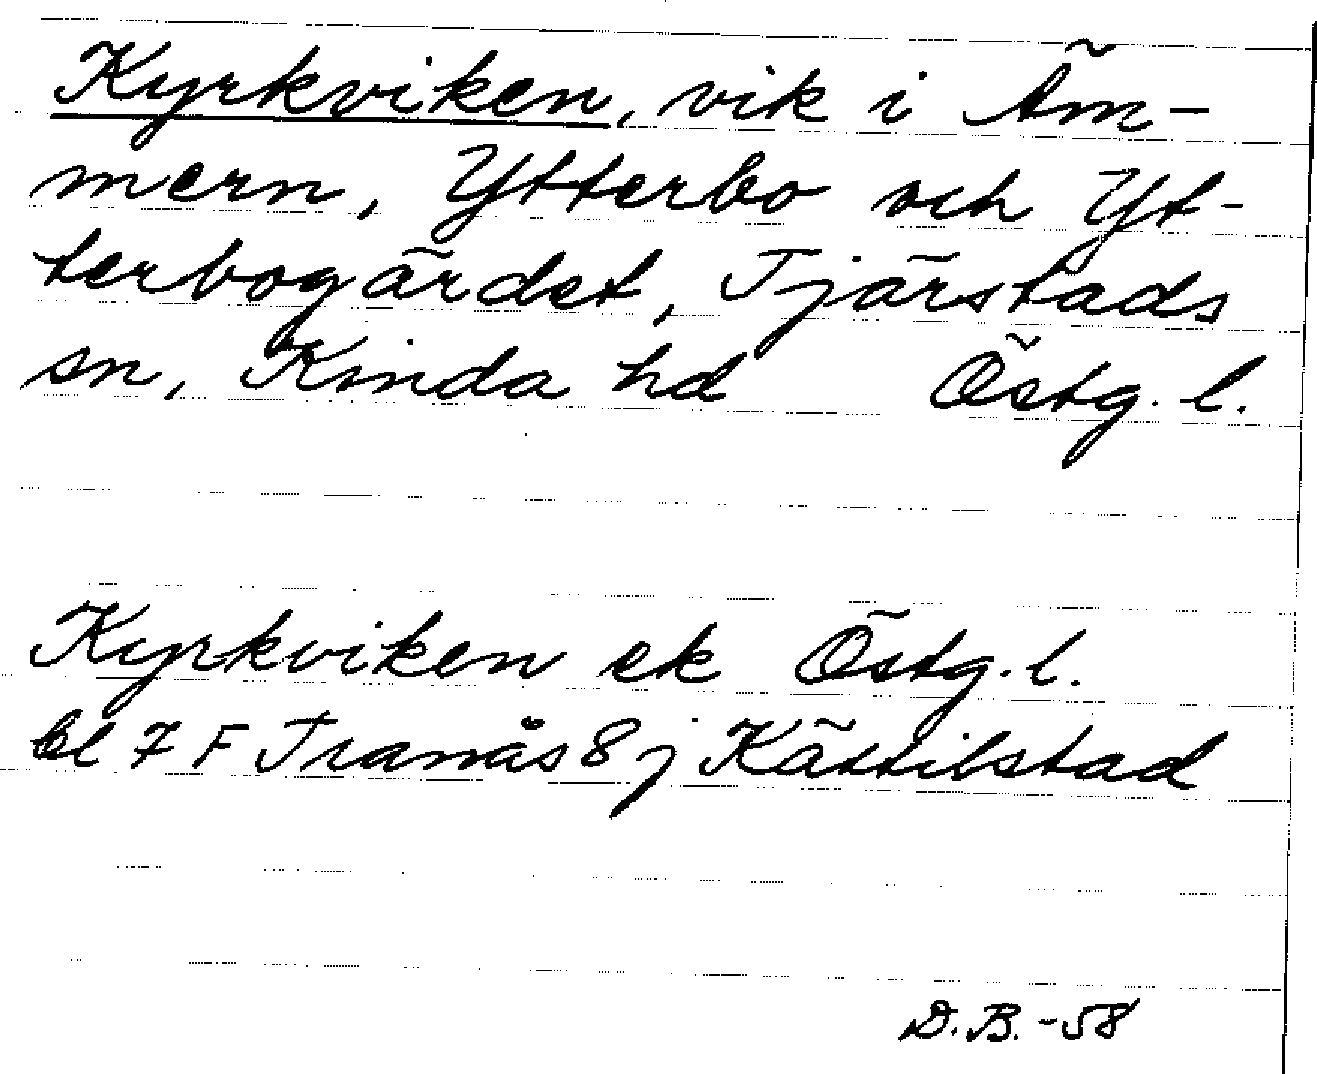 Kyrkviken, vik i Äm-
mern, Ytterbo och Yt-
terbogärdet, Tjärstads
sn, Kinda hd Östg. l.
Kyrkviken ek Östg. l.
bl 7 F Tranås 8 j Kättilstad
D.B. -58